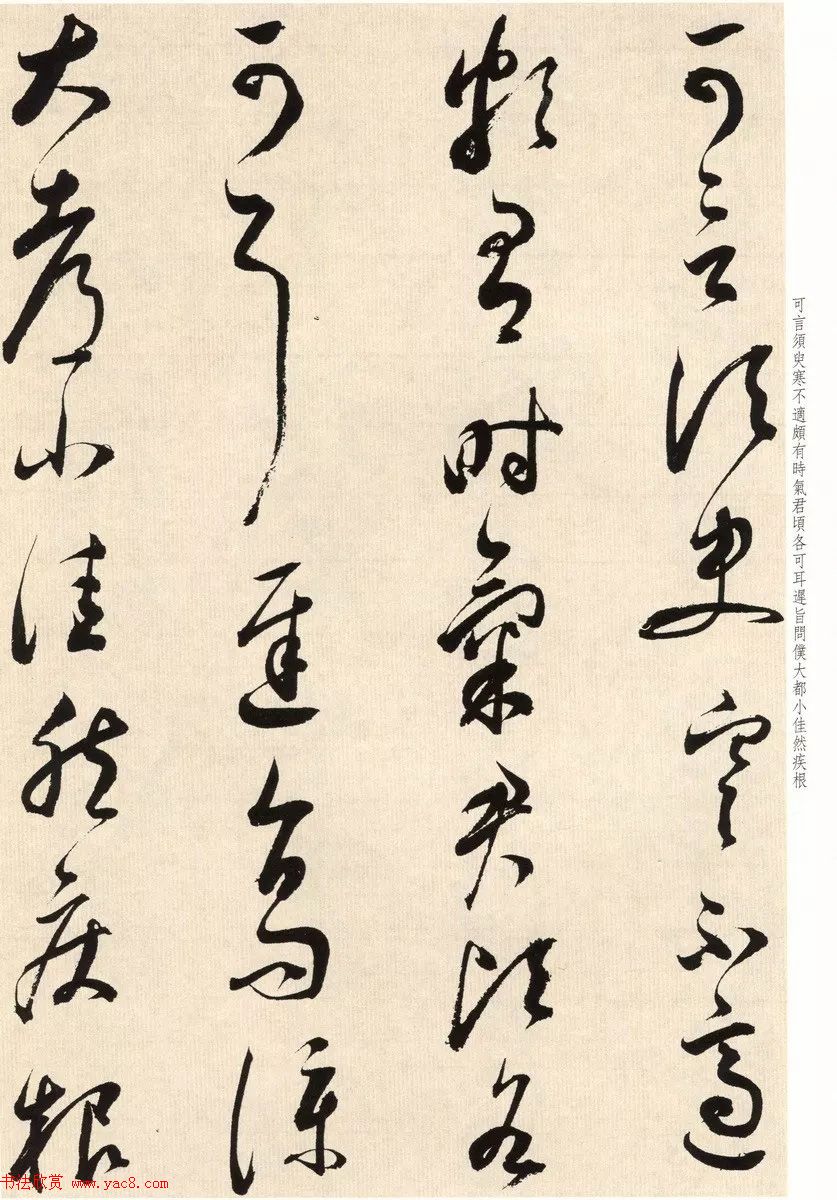 可言須臾寒不適
頗有時氣君頃各
可耳遲旨問僕
大都小佳然疾根
可言須臾寒不適頗有時氣君頃各可耳遲旨問僕大都小佳然疾根
书法欣赏 www.yac8.com